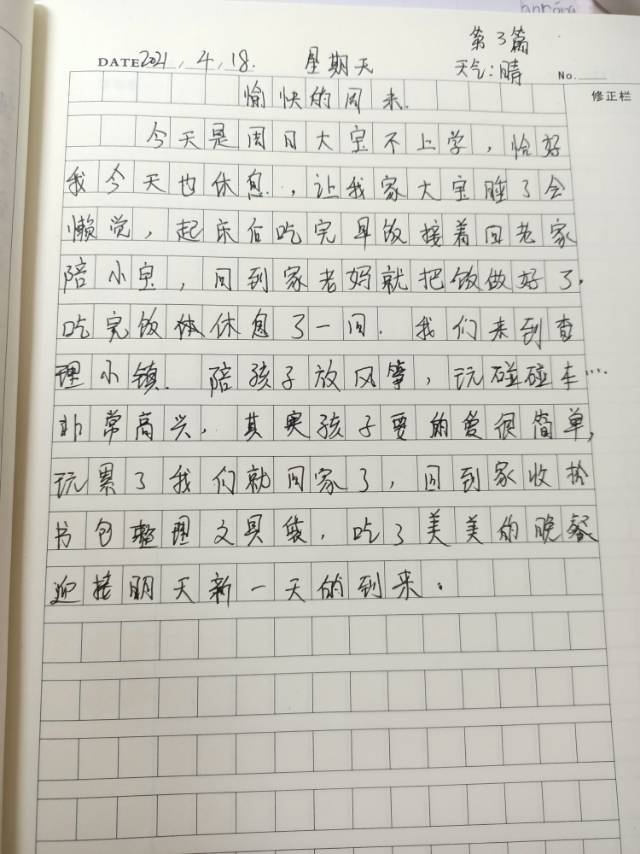 第3篇
DATE 2021.4.18. 星期天 天气:晴 No.
修正栏
愉快的周末.
今天是周日大宝不上学，恰好
我今天也休息.，让我家大宝睡了会
懒觉，起床后吃完早饭接着回老家
陪小宝，回到家老妈就把饭做好了.
吃完饭体休息了一回.我们来到查
理小镇.陪孩子放风筝，玩碰碰车…
非常高兴.其实孩子要的爱很简单,
玩累了我们就回家了，回到家收拾
书包整理文具袋.吃了美美的晚餐
迎接明天新一天的到来.